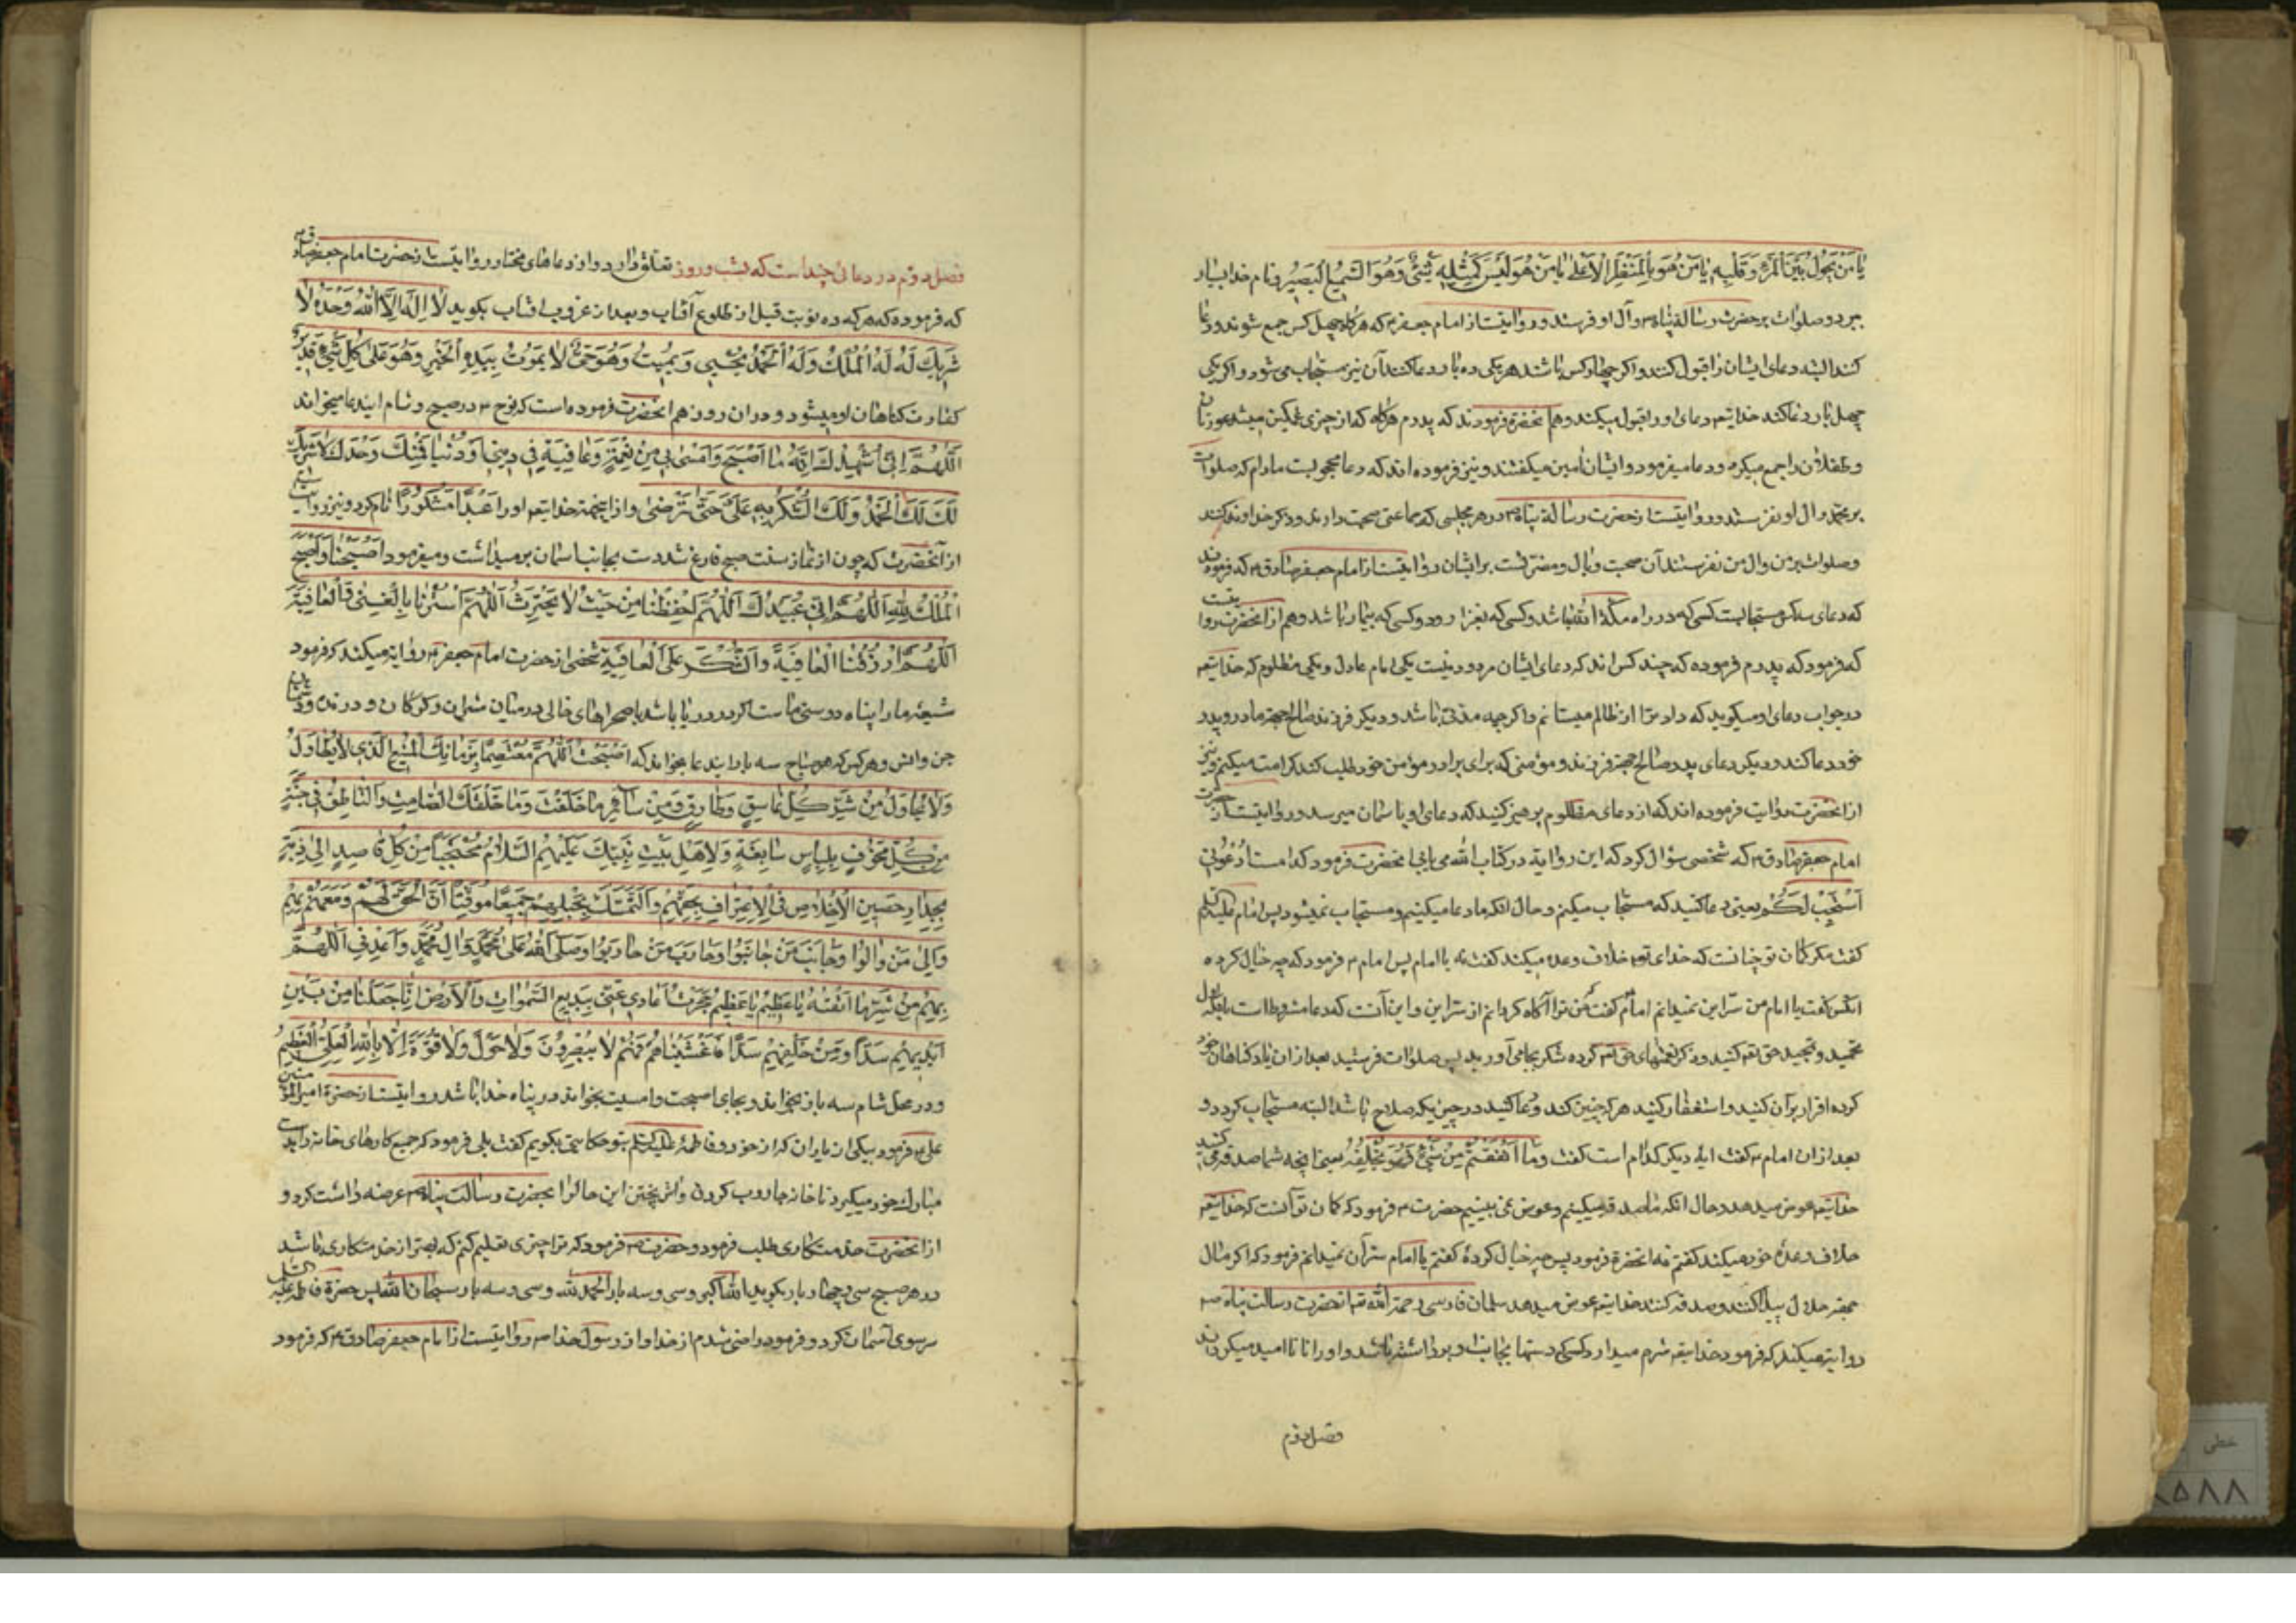 یَا مَنْ یَحُولُ بَیْنَ الْمَرْءِ وَقَلْبِهِ یَا مَنْ هُوَ بِالْمَنْظَرِ الْأَعْلَی یَا مَنْ هُوَ لَیْسَ کَمِثْلِهِ شَیْءٌ وَهُوَ السَّمِیعُ الْبَصِیرُ نام خدا بسیار
برد و صلوات بر حضرت رسالة پناه ص وآل او فرستد و روایتست از امام جعفر ع که هرگاه چهل کس جمع شوند و دعا
کنند البته دعای ایشان را قبول کنند و اکر چهار کس باشند هر یکی ده بار دعا کنند آن نیز مستجاب می شود و اکر یکی
چهل بار دعا کند خدایتعه دعای او را قبول میکند و هم آنحضرة فرمودند که پدرم هرگاه که از چیزی غمکین میشد عورتان
و طفلان را جمع میکرد و دعا میفرمود و ایشان آمین میکفتند و نیز فرموده اند که دعا محجوبست مادام که صلوات
بر محمد وال او نفرستند و روایتست از حضرت رسالة پناه ص در هر مجلسی که جماعتی صحبت دارند و ذکر خداوند نکنند
و صلوات بر من وال من نفرستند آن صحبت وبال و مضرتست بر ایشان و روایتست از امام جعفر صادق ع که فرمودند
که دعای سه کس مستجابست کسی که در راه مکة الله باشد و کسی که بغزا رود و کسی که بیمار باشد و هم از آنحضرت روایتست
که فرمود که پدرم فرموده که چند کس اند که دعای ایشان مردود نیست یکی امام عادل و یکی مظلوم که خدایتعه
در جواب دعای او میکوید که داد ترا از ظالم میستانم و اکرچه مدتی باشد و دیکر فرزند صالح جهة مادر و پدر
خود دعا کند و دیکر دعای پدر صالح جهة فرزند و مؤمنی که برای برادر مؤمن خود طلب کند کرامت میکنم و نیز
از آنحضرت روایت فرموده اند که از دعای مظلوم پرهیز کنید که دعای او با سمان میرسد و روایتست از حضرت
امام جعفر صادق ع که شخصی سؤال کرد که این دو ایة در کتاب الله می یابی آنحضرت فرمود کدامست اُدْعُونِی
اَسْتَجِبْ لَکُمْ یعنی دعا کنید که مستجاب میکنم و حال انکه ما دعا میکنیم و مستجاب نمیشود پس امام علیه السلم
کفت مکر کمان تو چنانست که خدای تعه خلاف وعده میکند کفت نه یا امام پس امام ع فرمود که چه خیال کرده
انکس کفت یا امام من سرّ این نمیدانم امام کفت که من ترا آکاه کردانم از سرّ این و این آنست که دعا مشروط است بانکه اول
تحمید و تمجید حق تعه کنید و ذکر نعمتهای حق تعه کرده شکر بجای آورید پس صلوات فرستید بعد از ان یاد کناهان خود
کرده اقرار بر آن کنید و استغفار کنید هر که چنین کند و دعا کنید در چیزیکه صلاح باشد البته مستجاب کردد و
بعد از ان امام ع کفت ایة دیکر کدام است کفت وَمَا أَنْفَقْتُمْ مِنْ شَیْءٍ فَهُوَ یُخْلِفُهُ یعنی انچه شما صدقه می کنید
خدایتعه عوض میدهد و حال انکه ما صدقه میکنیم و عوض نمی بینیم حضرت ع فرمود که کمان تو آنست که خدایتعه
خلاف وعدهٔ خود میکند کفتم نه انحضرة فرمود پس چه خیال کردهٔ کفتم یا امام سرّ آن نمیدانم فرمود که اکر مال
جهة حلال پیدا کنند و صدقه کنند خدایتعه عوض میدهد سلمان فارسی رحمة الله علیه از حضرت رسالت پناه ص
روایة میکند که فرمود خدایتعه شرم میدارد کسی که دستها بجانب او برداشته باشد و او را نا امید میکرداند
فصل دوم
فصل دوم در دعائی چند است که بشب و روز تعلق دارد و از دعاهای مختار روایتست از حضرت امام جعفر صادق ع
که فرموده که هر که ده نوبت قبل از طلوع آفتاب و بعد از غروب افتاب بکوید لَا إِلَهَ إِلَّا اللهُ وَحْدَهُ لَا
شَرِیكَ لَهُ لَهُ الْمُلْكُ وَلَهُ الْحَمْدُ یُحْیِی وَیُمِیتُ وَهُوَ حَیٌّ لَا یَمُوتُ بِیَدِهِ الْخَیْرِ وَهُوَ عَلَی کُلِّ شَیْءٍ قَدِیرٌ
کفارت کناهان او میشود در ان روز هم انحضرت فرموده است که نوح ع در صبح و شام ایندعا میخواند
اَللّٰهُمَّ اِنِّی اُشْهِدُكَ اَنَّهُ مَا اَصْبَحَ وَاَمْسَی بِی مِنْ نِعْمَةٍ وَعَافِیَةٍ فِی دِینٍ اَوْ دُنْیَا فَمِنْكَ وَحْدَكَ لَا شَرِیكَ
لَكَ لَكَ الْحَمْدُ وَلَكَ الشُّکْرُ بِهِ عَلَیَّ حَتَّی تَرْضَی و از اینجهة خدایتعه او را عَبْدًا مَشْکُورًا نام کرد و نیز روایتست
از آنحضرت که چون از نماز سنت صبح فارغ شد دست بجانب اسمان برمیداشت و میفرمود اَصْبَحْنَا وَاَصْبَحَ
الْمُلْكُ لِلّٰهِ اَللّٰهُمَّ اِنِّی عَبْدُكَ اَللّٰهُمَّ احْفِظْنَا مِنْ حَیْثُ لَا نَحْتَرِثُ اَللّٰهُمَّ اسْتُرْنَا بِالْغِنَی وَالْعَافِیَةِ
اَللّٰهُمَّ ارْزُقْنَا الْعَافِیَةَ وَالشُّکْرَ عَلَی الْعَافِیَةِ شخصی از حضرت امام جعفر ع روایة میکند که فرمود
شیعهٔ ما را پناه دوستی ماست اکر در دریا باشد یا صحراهای خالی در میان شیران و کرکان و درندن و دشمنان
جن وانس و هر کس که هر صباح سه بار ایندعا بخواند که اَصْبَحْتُ اَللّٰهُمَّ مُعْتَصِمًا بِذِمَامِكَ الْمَنِیعِ الَّذِی لَا یُطَاوَلُ
وَلَا یُحَاوَلُ مِنْ شَرِّ کُلِّ غَاسِقٍ وَطَارِقٍ مِنْ سَائِرِ مَا خَلَقْتَ وَمَا خَلْقَكَ الصَّامِتِ وَالنَّاطِقِ فِی جُنَّةٍ
مِنْ کُلِّ مَخُوفٍ بِلِبَاسٍ سَابِغَةٍ وَلَاءِ اَهْلِ بَیْتِ نَبِیِّكَ عَلَیْهِمُ السَّلَامُ مُحْتَجِبًا مِنْ کُلِّ قَاصِدٍ اِلَی اَذِیَّةٍ
بِجِدَارِ حَصِینِ الْاِخْلَاصِ فِی الْاِعْتِرَافِ بِحَقِّهِمْ وَالتَّمَسُّكِ بِحَبْلِهِمْ جَمِیعًا مُوقِنًا اَنَّ الْحَقَّ لَهُمْ وَمَعَهُمْ وَبِهِمْ
وَاَلِی مَنْ وَالَوْا وَجَانَبَ مَنْ جَانَبُوا وَحَارَبَ مَنْ حَارَبُوا وَصَلَّی اللهُ عَلَی مُحَمَّدٍ وَالِ مُحَمَّدٍ وَاَعِذْنِی اَللّٰهُمَّ
بِهِمْ مِنْ شَرِّ مَا اَتَّقِیهِ یَا عَظِیمُ یَا عَظِیمُ حَجَزْتُ اَعَادِیَ عَنِّی بِبَدِیعِ السَّمَوَاتِ وَالْاَرْضِ اِنَّا جَعَلْنَا مِنْ بَیْنِ
اَیْدِیهِمْ سَدًّا وَمِنْ خَلْفِهِمْ سَدًّا فَاَغْشَیْنَاهُمْ فَهُمْ لَا یُبْصِرُونَ وَلَا حَوْلَ وَلَا قُوَّةَ اِلَّا بِاللهِ الْعَلِیِّ الْعَظِیمِ
و در محل شام سه بار بخواند و بجای اصبحت وامسیت بخواند در پناه خدا باشد روایتست از حضرة امیرالمؤمنین
علی ع فرمود بیکی از یاران که از خود و فاطمه علیها السلم بتو حکایتی بکویم کفت بلی فرمود که جمیع کارهای خانه را بدست
مبارك خود میکرد تا خانه جاروب کردن و اش پختن این حال را بحضرت رسالت پناه ص عرضه داشت کرد و
از آنحضرت خدمتکاری طلب فرمود و حضرت ص فرمود که ترا چیزی تعلیم کنم که بهتر از خدمتکاری باشد
در هر صبح سی و چهار بار بکوید الله اکبر و سی و سه بار الحمد لله و سی و سه بار سبحان الله پس حضرة فاطمه علیها السلم
سر سوی آسمان کرد و فرمود راضی شدم از خدا و از رسول خدا ص روایتست از امام جعفر صادق ع که فرمود
خطی
۸۵۸۸